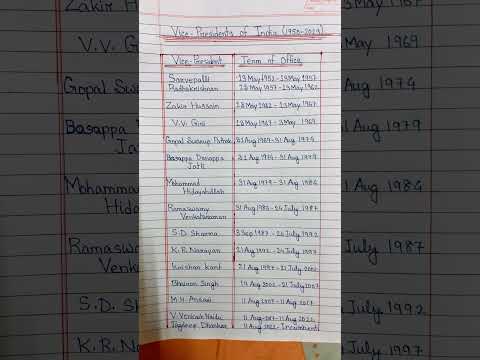 Vice-Presidents of India (1950-2023)
Vice-President Term of Office
Sarvepalli 13 May 1952 - 13 May 1957
Radhakrishnan 13 May 1957 - 13 May 1962
Zakir Hussain 13 May 1962 - 13 May 1967
V.V. Giri 13 May 1967 - 3 May 1969
Gopal Swarup Pathak 31 Aug 1969 - 31 Aug 1974
Basappa Danappa 31 Aug 1974 - 31 Aug 1979
Jatti
Mohammad 31 Aug 1979 - 31 Aug 1984
Hidayatullah
Ramaswamy 31 Aug 1984 - 24 July 1987
Venkataraman
S.D. Sharma 3 Sep 1987 - 24 July 1992
K.R. Narayan 21 Aug 1992 - 24 July 1997
Krishan Kant 21 Aug 1997 - 27 July 2002
Bhairon Singh 19 Aug 2002 - 21 July 2007
M.H. Ansari 11 Aug 2007 - 11 Aug 2017
V. Venkaih Naidu 11 Aug 2017 - 11 Aug 2022
Jagdeep Dhankar 11 Aug 2022 - Incumbent
Zakir Hu
V.V. Gi
Gopal Swa
Basappa D
Ja
Mohamm
Hida
Ramasw
Venka
S.D. Sh
K.R. Na
May 1967
1969
Aug 1974
Aug 1979
Aug 1984
July 1987
July 1992
July 1997